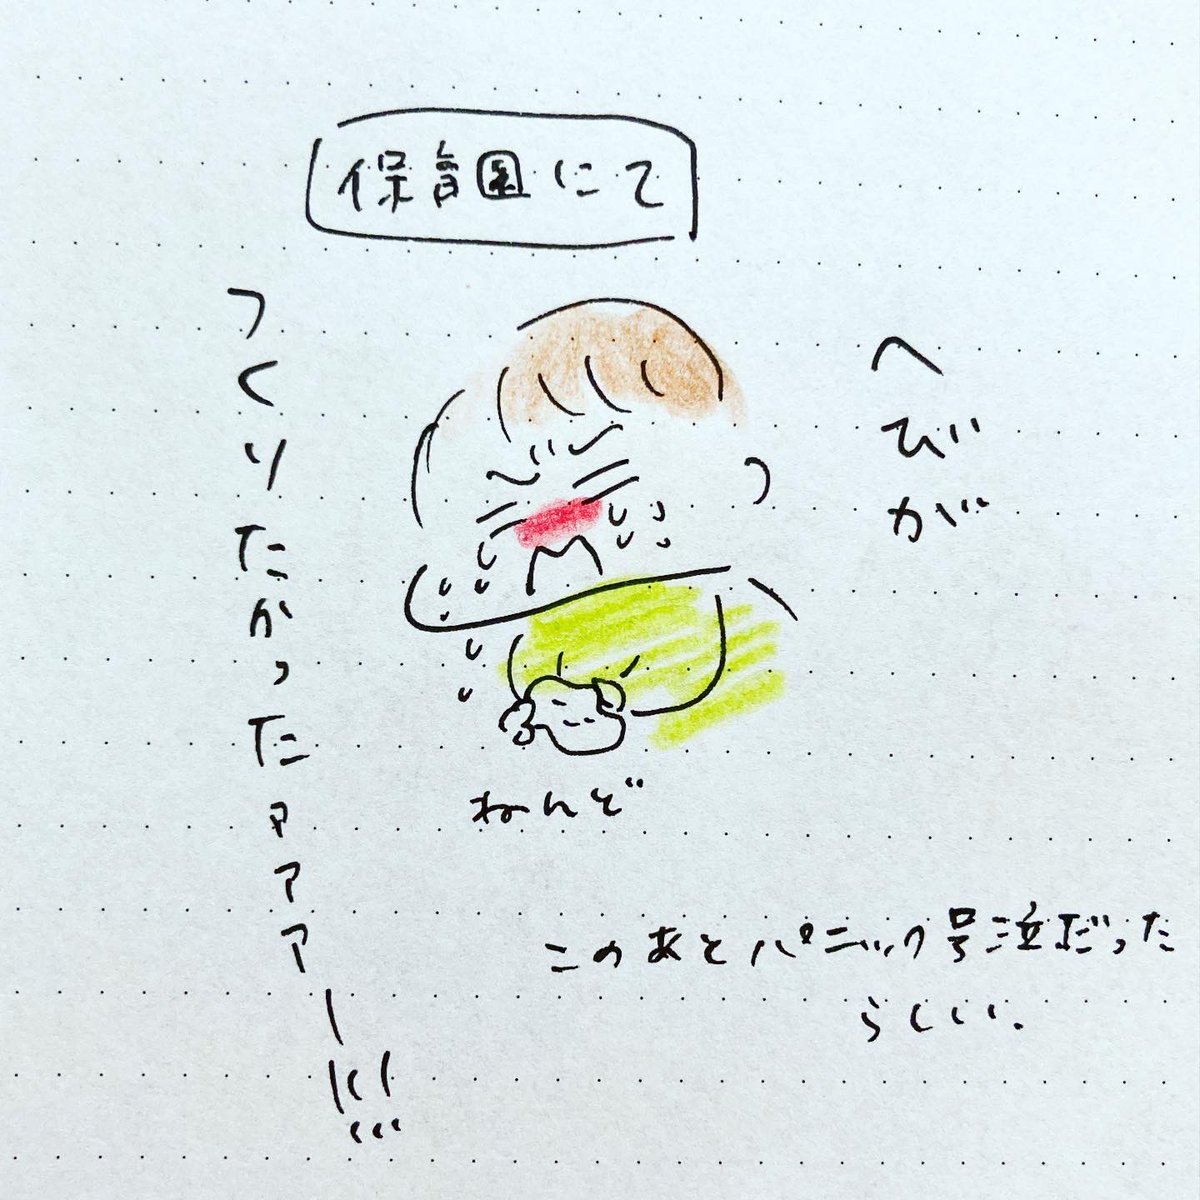 保育園にて
へびが
つくりたかったァァァー!!!
ねんど
このあとパニック号泣だった
らしい.